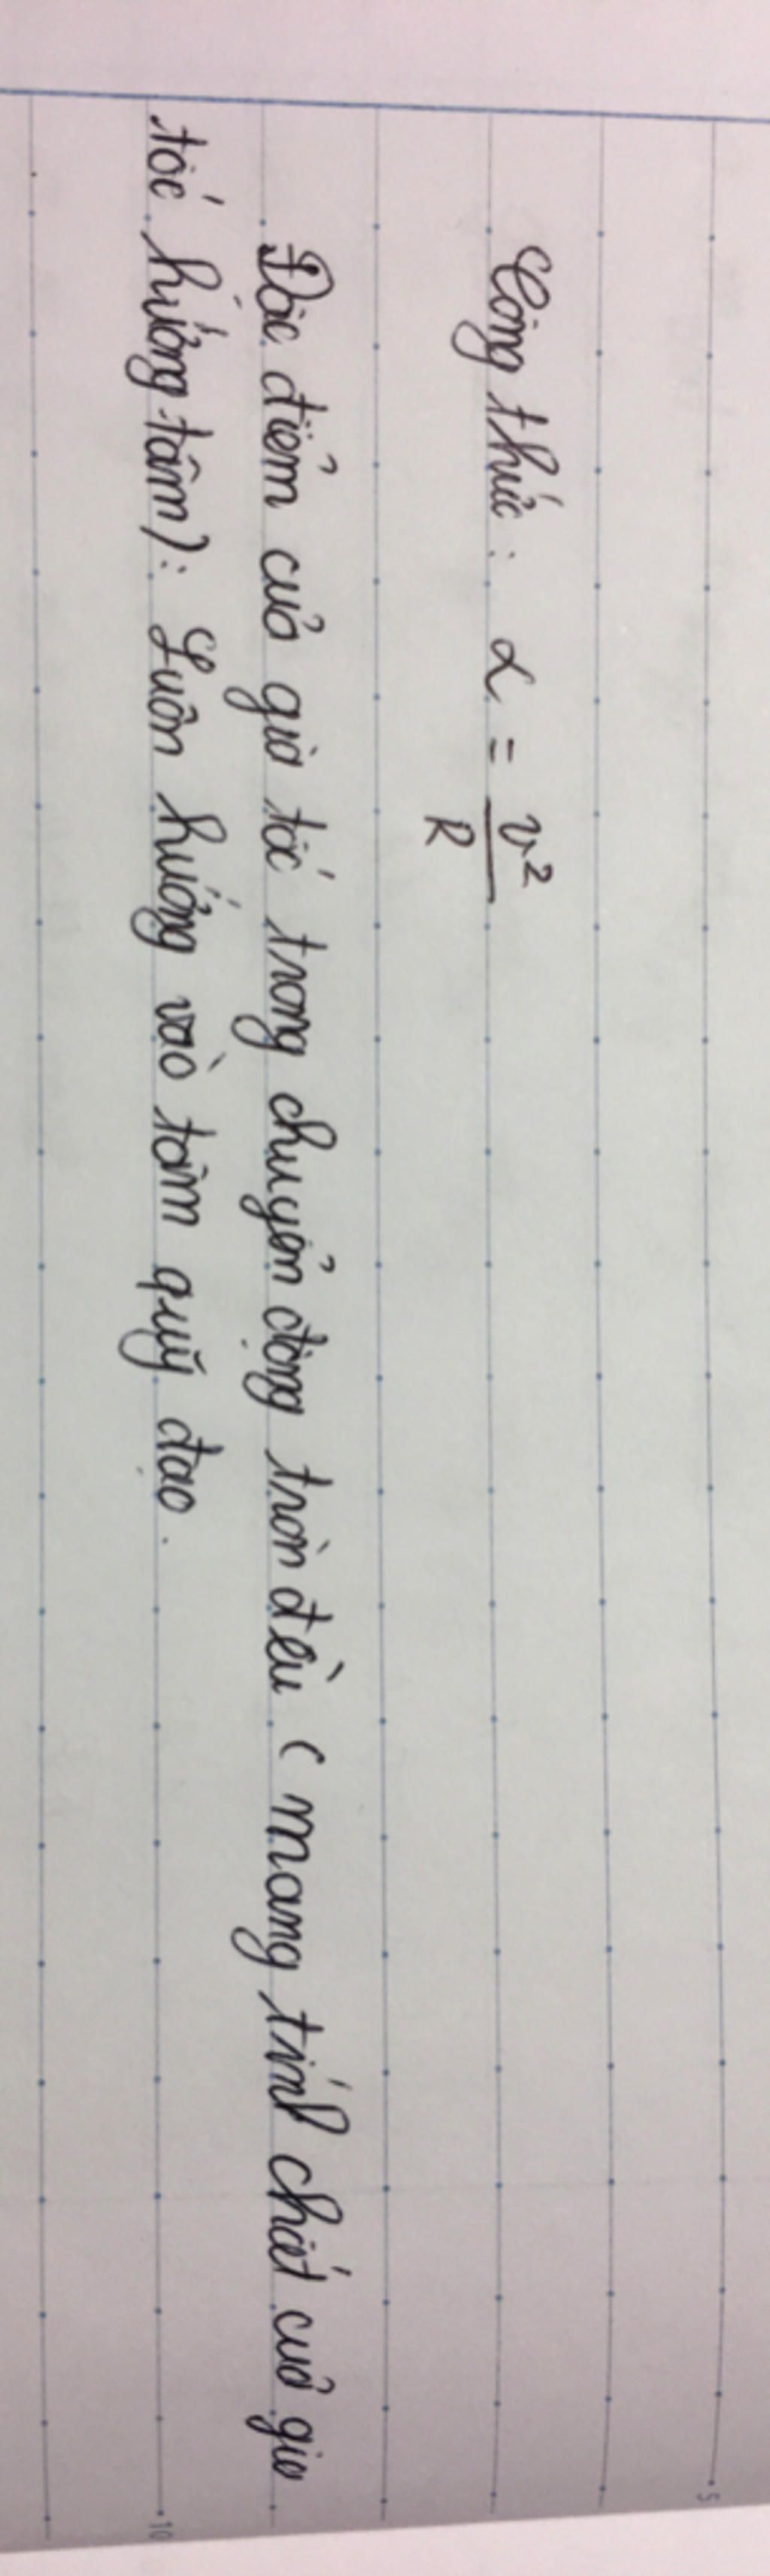 Công thức: α = v²/R
Đặc điểm của gia tốc trong chuyển động tròn đều (mang tính chất của gia
tốc hướng tâm): Luôn hướng vào tâm quỹ đạo.
5
10